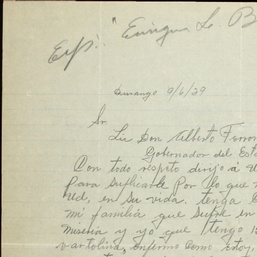 Exp: "Enrique L. B
Durango 2/6/29
Sr
Lic Don Alberto Terron
Gobernador del Esta
Con todo respeto dirijo á U
para suplicarle por lo que
Ud, en su vida. tenga
mi familia que sufre en
miseria y yo que tengo
vartolina, enfermo como estoy,